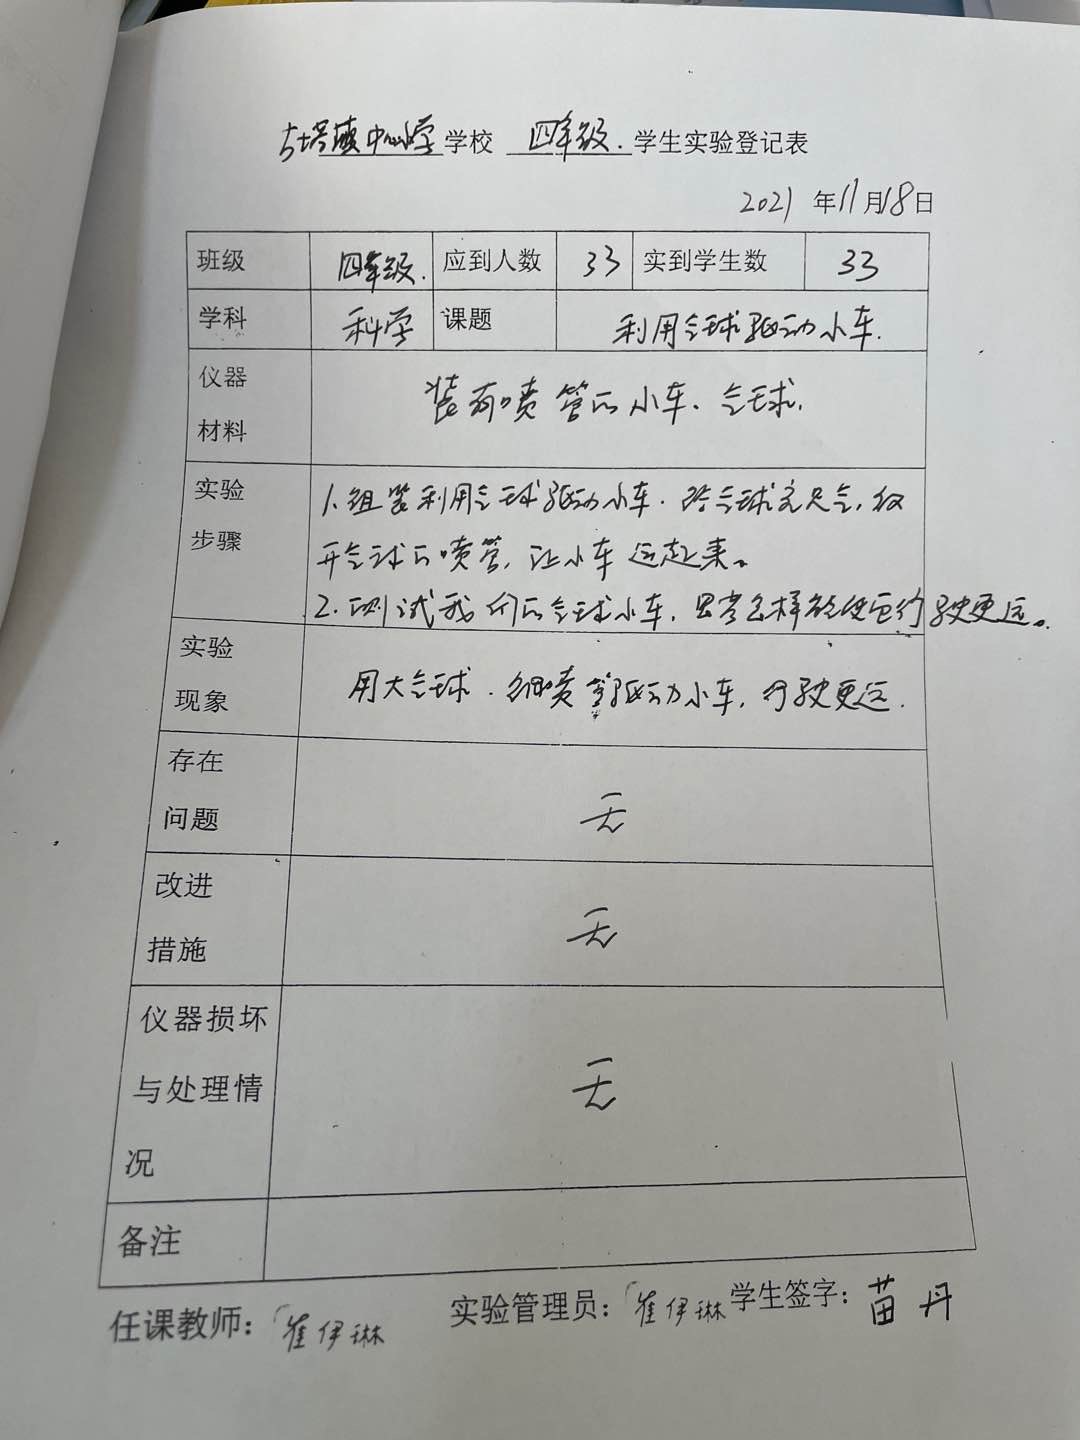 古塔镇中心小学学校 四年级.学生实验登记表
2021 年11月18日
班级 四年级. 应到人数 33 实到学生数 33
学科 科学 课题 利用气球驱动小车.
仪器
材料
装有喷管的小车、气球.
实验
步骤
1.组装利用气球驱动小车.给气球充足气,放
开气球的喷管,让小车运起来。
2.测试我们的气球小车,思考怎样能使它行驶更远。
实验
现象
用大气球.细喷管驱动小车,行驶更远.
存在
问题
无
改进
措施
无
仪器损坏
与处理情
况
无
备注
任课教师: 崔伊琳 实验管理员: 崔伊琳 学生签字: 苗丹